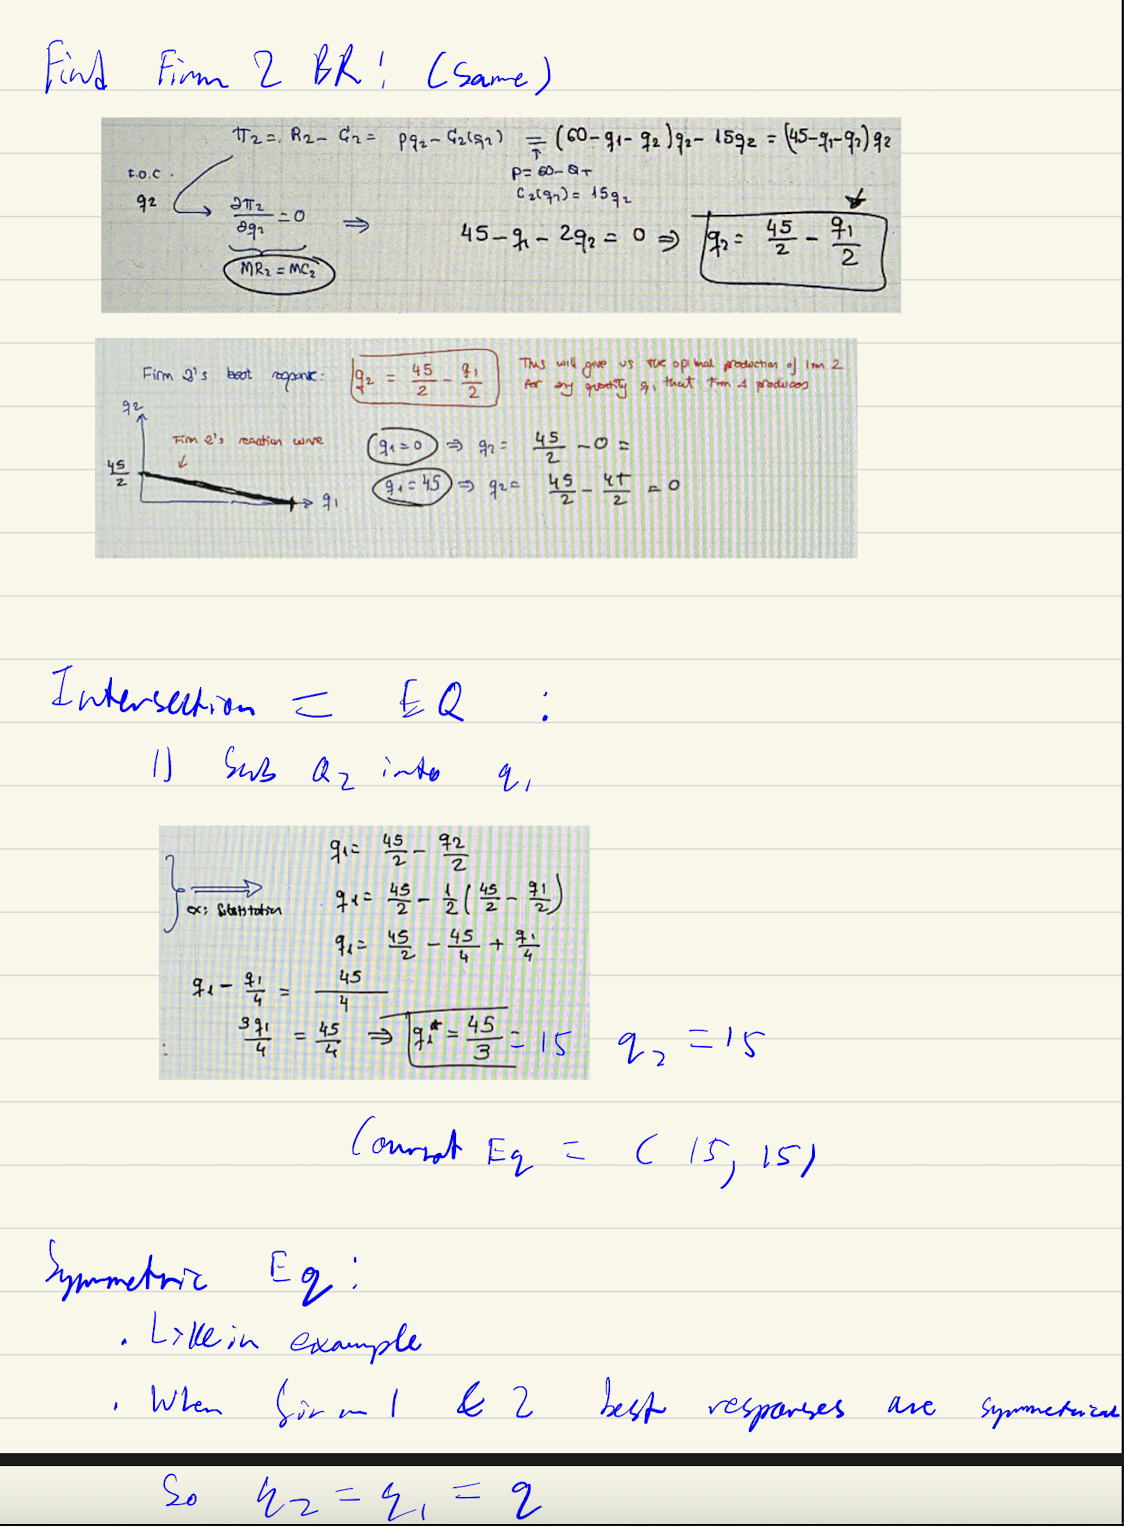 Find Firm 2 BR! (Same)
π2 = R2 - C2 = pq2 - C2(q2) = (60-q1-q2)q2 - 15q2 = (45-q1-q2)q2
↑
P = 60 - QT
C2(q2) = 15q2
F.O.C.
q2
∂π2/∂q2 = 0 ⇒ 45 - q1 - 2q2 = 0 ⇒ q2 = 45/2 - q1/2
MR2 = MC2
Firm 2's best response: q2 = 45/2 - q1/2 This will give us the optimal production of firm 2
for any quantity q1 that firm 1 produces
q2
Firm 2's reaction curve
q1=0 ⇒ q2 = 45/2 - 0 =
45/2
q1=45 ⇒ q2 = 45/2 - 45/2 = 0
q1
Intersection = EQ :
1) Sub Q2 into q1
q1 = 45/2 - q2/2
q1 = 45/2 - 1/2(45/2 - q1/2)
q1 = 45/2 - 45/4 + q1/4
q1 - q1/4 = 45/4
3q1/4 = 45/4 ⇒ q1* = 45/3 = 15 q2 = 15
Cournot Eq = (15, 15)
Symmetric Eq:
. Like in example
. When firm 1 & 2 best responses are symmetrical
So q2 = q1 = q